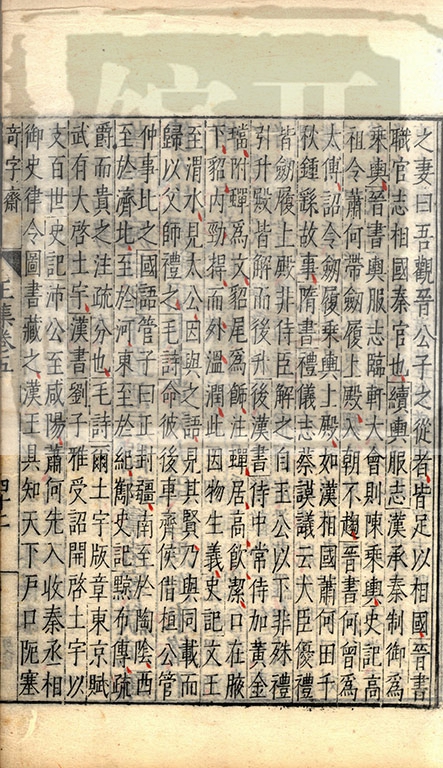 之妻曰吾觀晉公子之從者皆足以相國晉書
職官志相國秦官也續輿服志漢承秦制御為
乘輿晉書輿服志臨軒大會則陳乘輿史記高
祖令蕭何帶劒履上殿入朝不趨晉書何曾為
太傅詔令劒履乘輿上殿如漢相國蕭何田千
秋鍾繇故事隋書禮儀志蔡謨議云大臣優禮
皆劒履上殿非侍臣解之自王公以下非殊禮
引升殿皆解而後升後漢書侍中常侍加黃金
璫附蟬為文貂尾為飾注蟬居高飲潔口在腋
下貂內勁捍而外溫潤此因物生義史記文王
至渭水見太公因與之語見其賢乃與同載而
歸以父師禮之毛詩命彼後車齊侯借桓公管
仲事比之國語管子曰正封疆南至於陶陰西
至於濟北至於河東至於紀酅史記黥布傳疏
爵而貴之注疏分也毛詩爾土宇版章東京賦
武有大啓土宇漢書劉子雅受詔開啓土宇以
支百世史記沛公至咸陽蕭何先入收秦丞相
御史律令圖書藏之漢王具知天下戶口阨塞
奇字齋
王集卷五